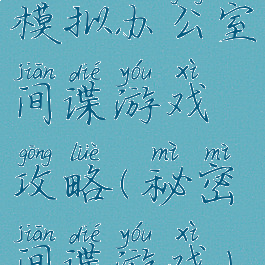 模拟办公室
jiān dié yóu xì
间谍游戏
gōng lüè mì mì
攻略(秘密
jiān dié yóu xì
间谍游戏)